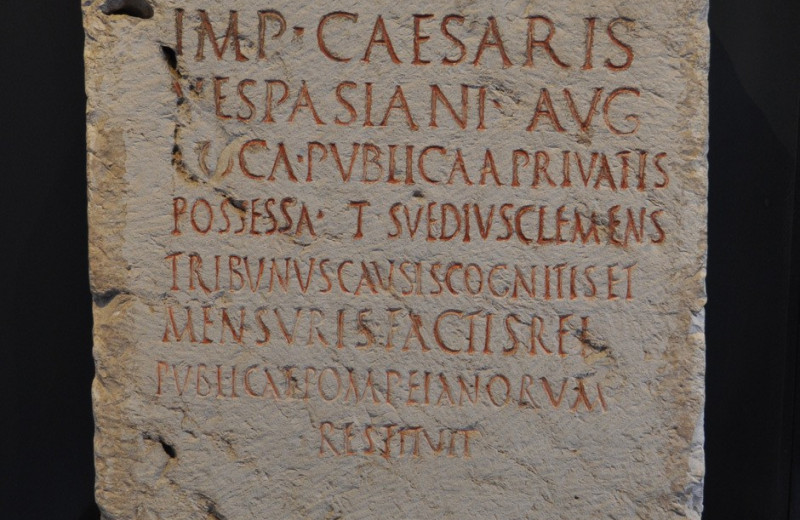 IMP · CAESARIS
VESPASIANI · AVG
LOCA · PVBLICA A PRIVATIS
POSSESSA · T SVEDIVS CLEMENS
TRIBVNVS CAVSIS COGNITIS ET
MENSVRIS FACTIS REI
PVBLICAE POMPEIANORVM
RESTITVIT